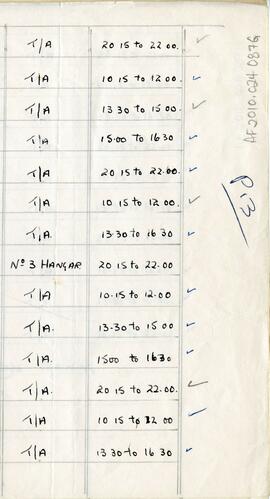 T/A 20 15 to 22.00.
T/A 10 15 to 12 00
T/A 13 30 to 15 00
T/A 15.00 to 16 30
T/A 20 15 to 22.00
T/A 10 15 to 12.00
T/A. 13.30 to 16 30
Nº 3 HANGAR 20 15 to 22.00
T/A 10.15 to 12.00
T/A. 13-30 to 15 00
T/A. 1500 to 16 30
T/A. 20 15 to 22.00.
T/A 10 15 to 12 00
T/A 13 30 to 16 30
AF2010.024.0876